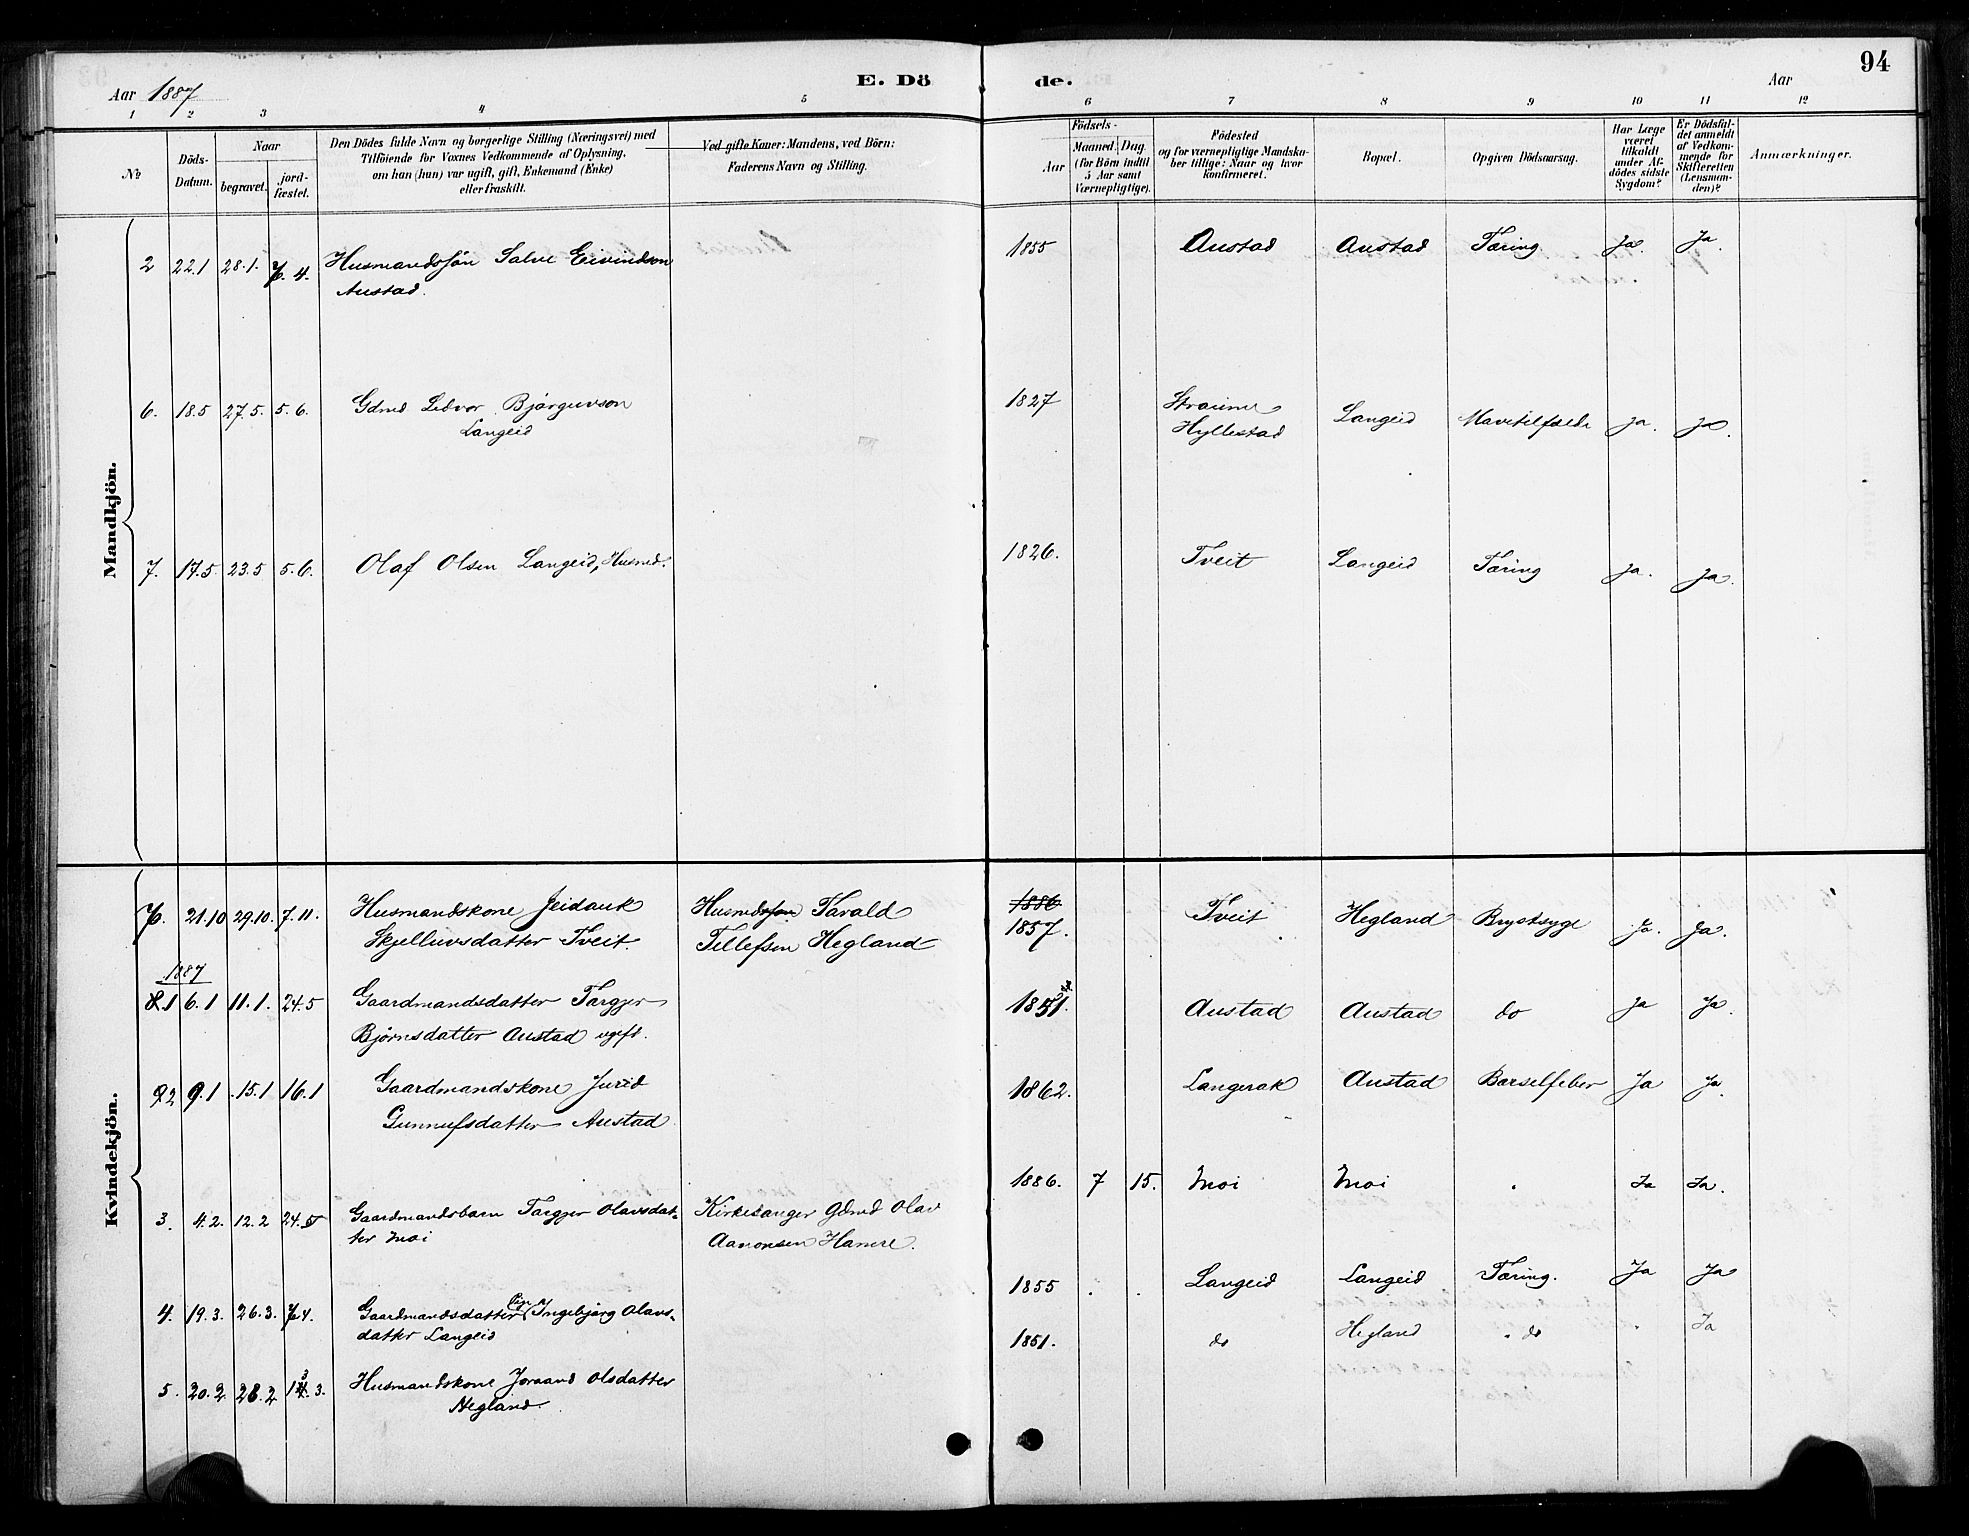 94
Aar 1887
E. Dö de.
Aar
1 2 3 4 5 6 7 8 9 10 11 12
No
Döds-
Datum.
Naar
begravet.
jord-
fæstet.
Den Dödes fulde Navn og borgerlige Stilling (Næringsvei) med
Tilföiende for Voxnes Vedkommende af Oplysning,
om han (hun) var ugift, gift, Enkemand (Enke)
eller fraskilt.
Ved gifte Koner: Mandens, ved Börn:
Faderens Navn og Stilling.
Födsels-
Aar
Maaned. Dag.
(for Börn indtil
5 Aar samt
Værnepligtige).
Födested
og for værnepligtige Mandska-
ber tillige: Naar og hvor
konfirmeret.
Bopæl.
Opgiven Dödsaarsag.
Har Læge
været
tilkaldt
under Af-
dödes sidste
Sygdom?
Er Dödsfal-
det anmeldt
af Vedkom-
mende for
Skifteretten
(Lensman-
den)?
Anmærkninger.
Mandkjön.
2 22.1 28.1. 4. Husmandssøn Salve Eivindson 1855 Austad Austad Tæring Ja. Ja.
Austad.
6. 18.5 27.5. 5.6. Gdmd Ledvor Bjørguvson 1827 Straume Langeid Mavetilfælde Ja. Ja.
Langeid Hyllestad
7. 17.5. 23.5 5.6. Olaf Olsen Langeid, Husmd. 1826. Tveit Langeid Tæring Ja. Ja.
Kvindekjön.
21.10 29.10. 7.11. Husmandskone Jeidauk Husmdsøn Tarald 1886 Tveit Hegland Brystsyge Ja. Ja.
Skjelluvsdatter Tveit. Tellefsen Hegland 1857.
1887
1 6.1 11.1. 24.5 Gaardmandsdatter Targjer 1851. Austad Austad do Ja Ja.
Bjørnsdatter Austad ugift.
2 9.1 15.1 16.1 Gaardmandskone Jurid 1862. Langerak Austad Barselfeber Ja Ja.
Gunnufsdatter Austad
3. 4.2. 12.2 24.5 Gaardmandsbarn Targjer Olavsdat- Kirkesanger Gdmd Olav 1886. 7 15. Moi Moi Ja Ja.
ter Moi Aanonsen Hamre.
4. 19.3. 26.3. 4. Gaardmandsdatter Pige Ingebjørg Olavs- 1855 Langeid Langeid Tæring. Ja Ja
datter Langeid
5. 20.2 28.2 3. Husmandskone Joraand Olsdatter 1851. do Hegland do Ja
Hegland.